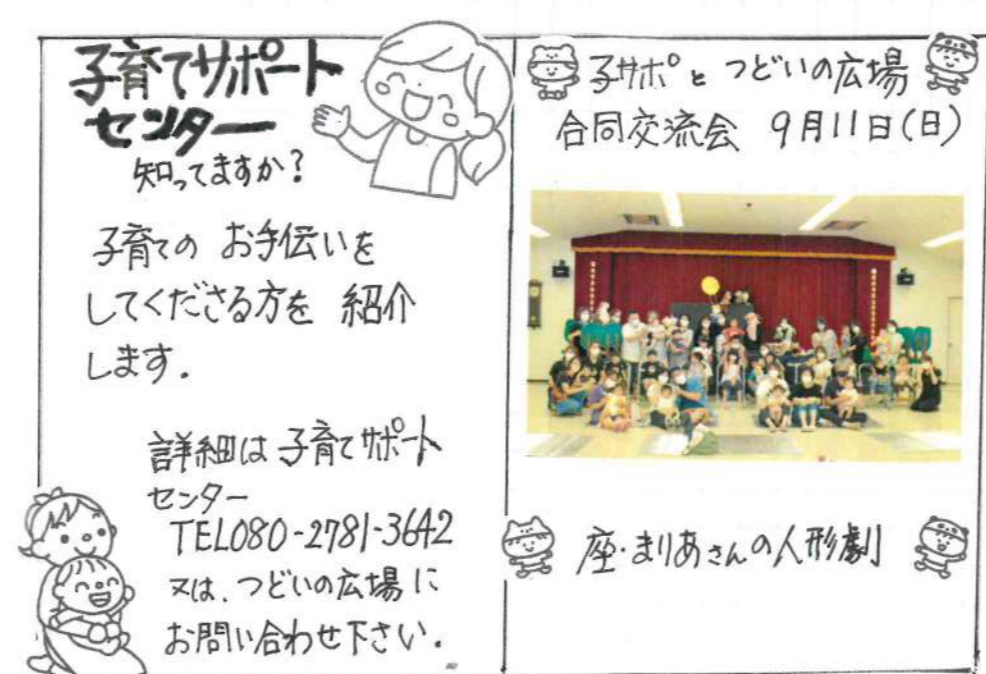 子育てサポート
センター
知ってますか?
子育ての お手伝いを
してくださる方を 紹介
します.
詳細は 子育てサポート
センター
TEL080-2781-3642
又は、つどいの広場に
お問い合わせ下さい.
子サポと つどいの広場
合同交流会 9月11日(日)
座・まりあさんの人形劇